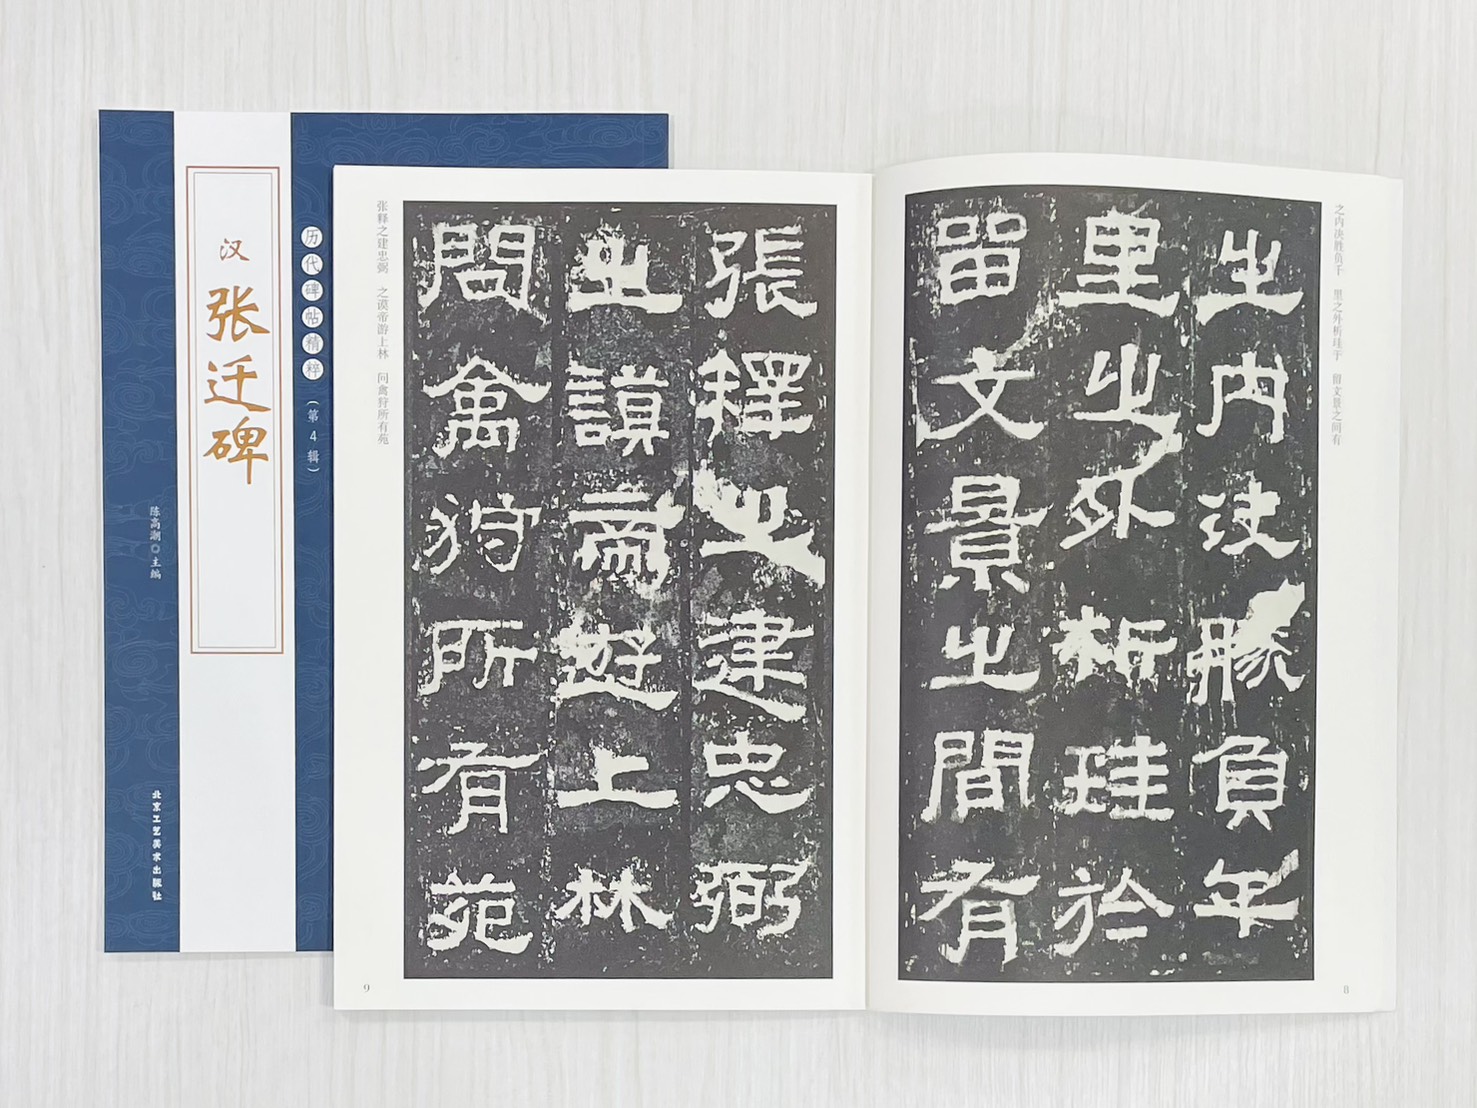 汉
张迁碑
历代碑帖精粹
（第4辑）
陈高潮◎主编
北京工艺美术出版社
之内决胜负千　里之外析珪于　留文景之间有
之内决勝負千
里之外析珪於
留文景之間有
8
张释之建忠弼　之谟帝游上林　问禽狩所有苑
張釋之建忠弼
之謨帝遊上林
問禽狩所有苑
9